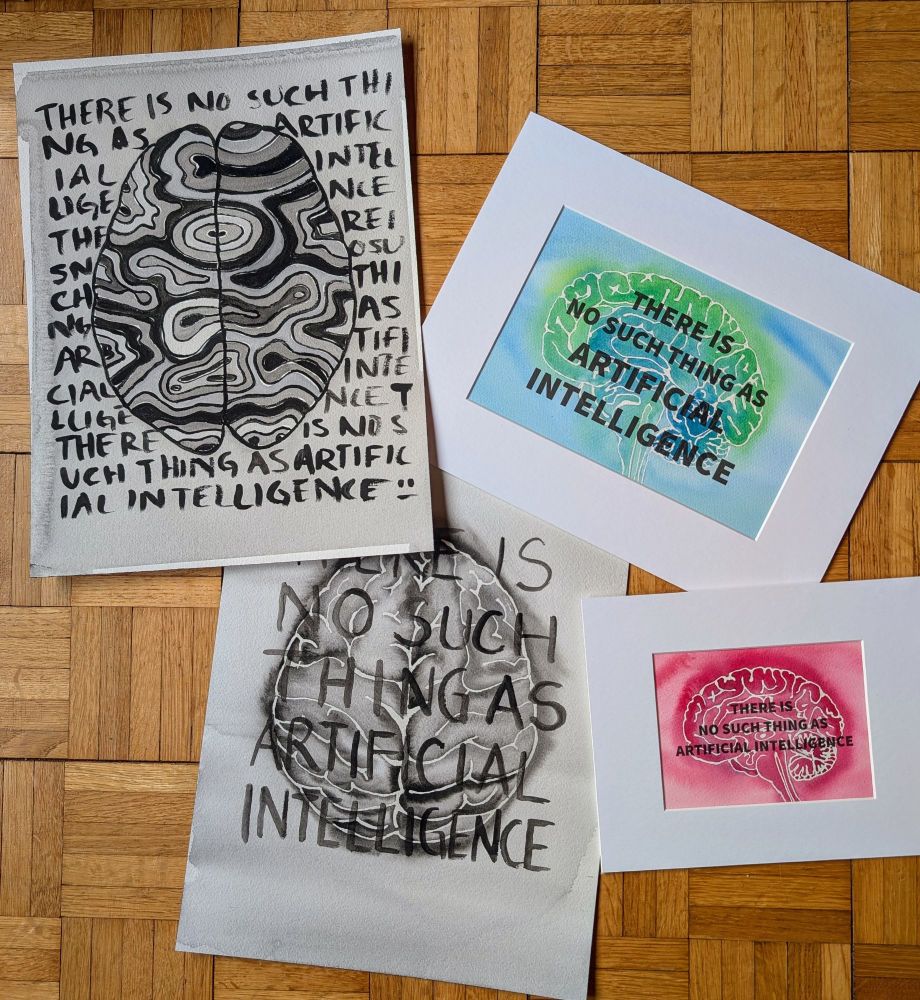 THERE IS NO SUCH THI
NG AS ARTIFIC
IAL INTEL
LIGE NCE
THE RE I
SN OSU
CH THI
NG AS
AR TIFI
CIAL INTE
LLIGE NCE T
THERE IS NO S
UCH THING AS ARTIFIC
IAL INTELLIGENCE
THERE IS
NO SUCH THING AS
ARTIFICIAL
INTELLIGENCE
THERE IS
NO SUCH
THING AS
ARTIFICIAL
INTELLIGENCE
THERE IS
NO SUCH THING AS
ARTIFICIAL INTELLIGENCE